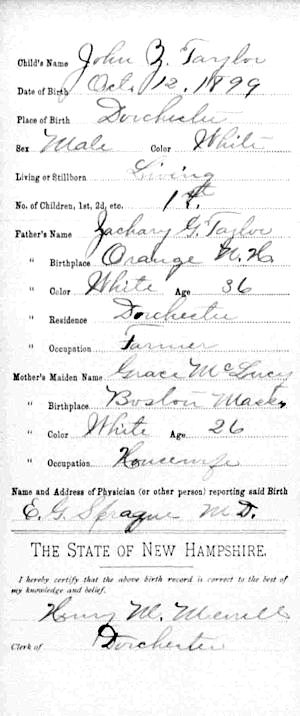 Child's Name John Z. Taylor
Date of Birth Oct. 12, 1899
Place of Birth Dorchester
Sex Male Color White
Living or Stillborn Living
No. of Children, 1st, 2d, etc. 1st.
Father's Name Zachary G. Taylor
" Birthplace Orange N. H.
" Color White Age 36
" Residence Dorchester
" Occupation Farmer
Mother's Maiden Name Grace McLucy
" Birthplace Boston Mass,
" Color White Age 26
" Occupation Housewife
Name and Address of Physician (or other person) reporting said Birth
E. G. Sprague M. D.
THE STATE OF NEW HAMPSHIRE.
I hereby certify that the above birth record is correct to the best of
my knowledge and belief.
Henry M. Merrill
Clerk of Dorchester